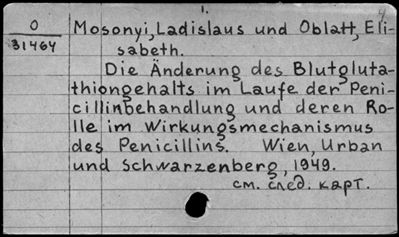 1.
4
O
31464
Mosonyi, Ladislaus und Oblatt, Eli-
sabeth.
Die Änderung des Blutgluta-
thiongehalts im Laufe der Peni-
cillinbehandlung und deren Ro-
lle im Wirkungsmechanismus
des Penicillins. Wien, Urban
und Schwarzenberg, 1949.
см. след. карт.